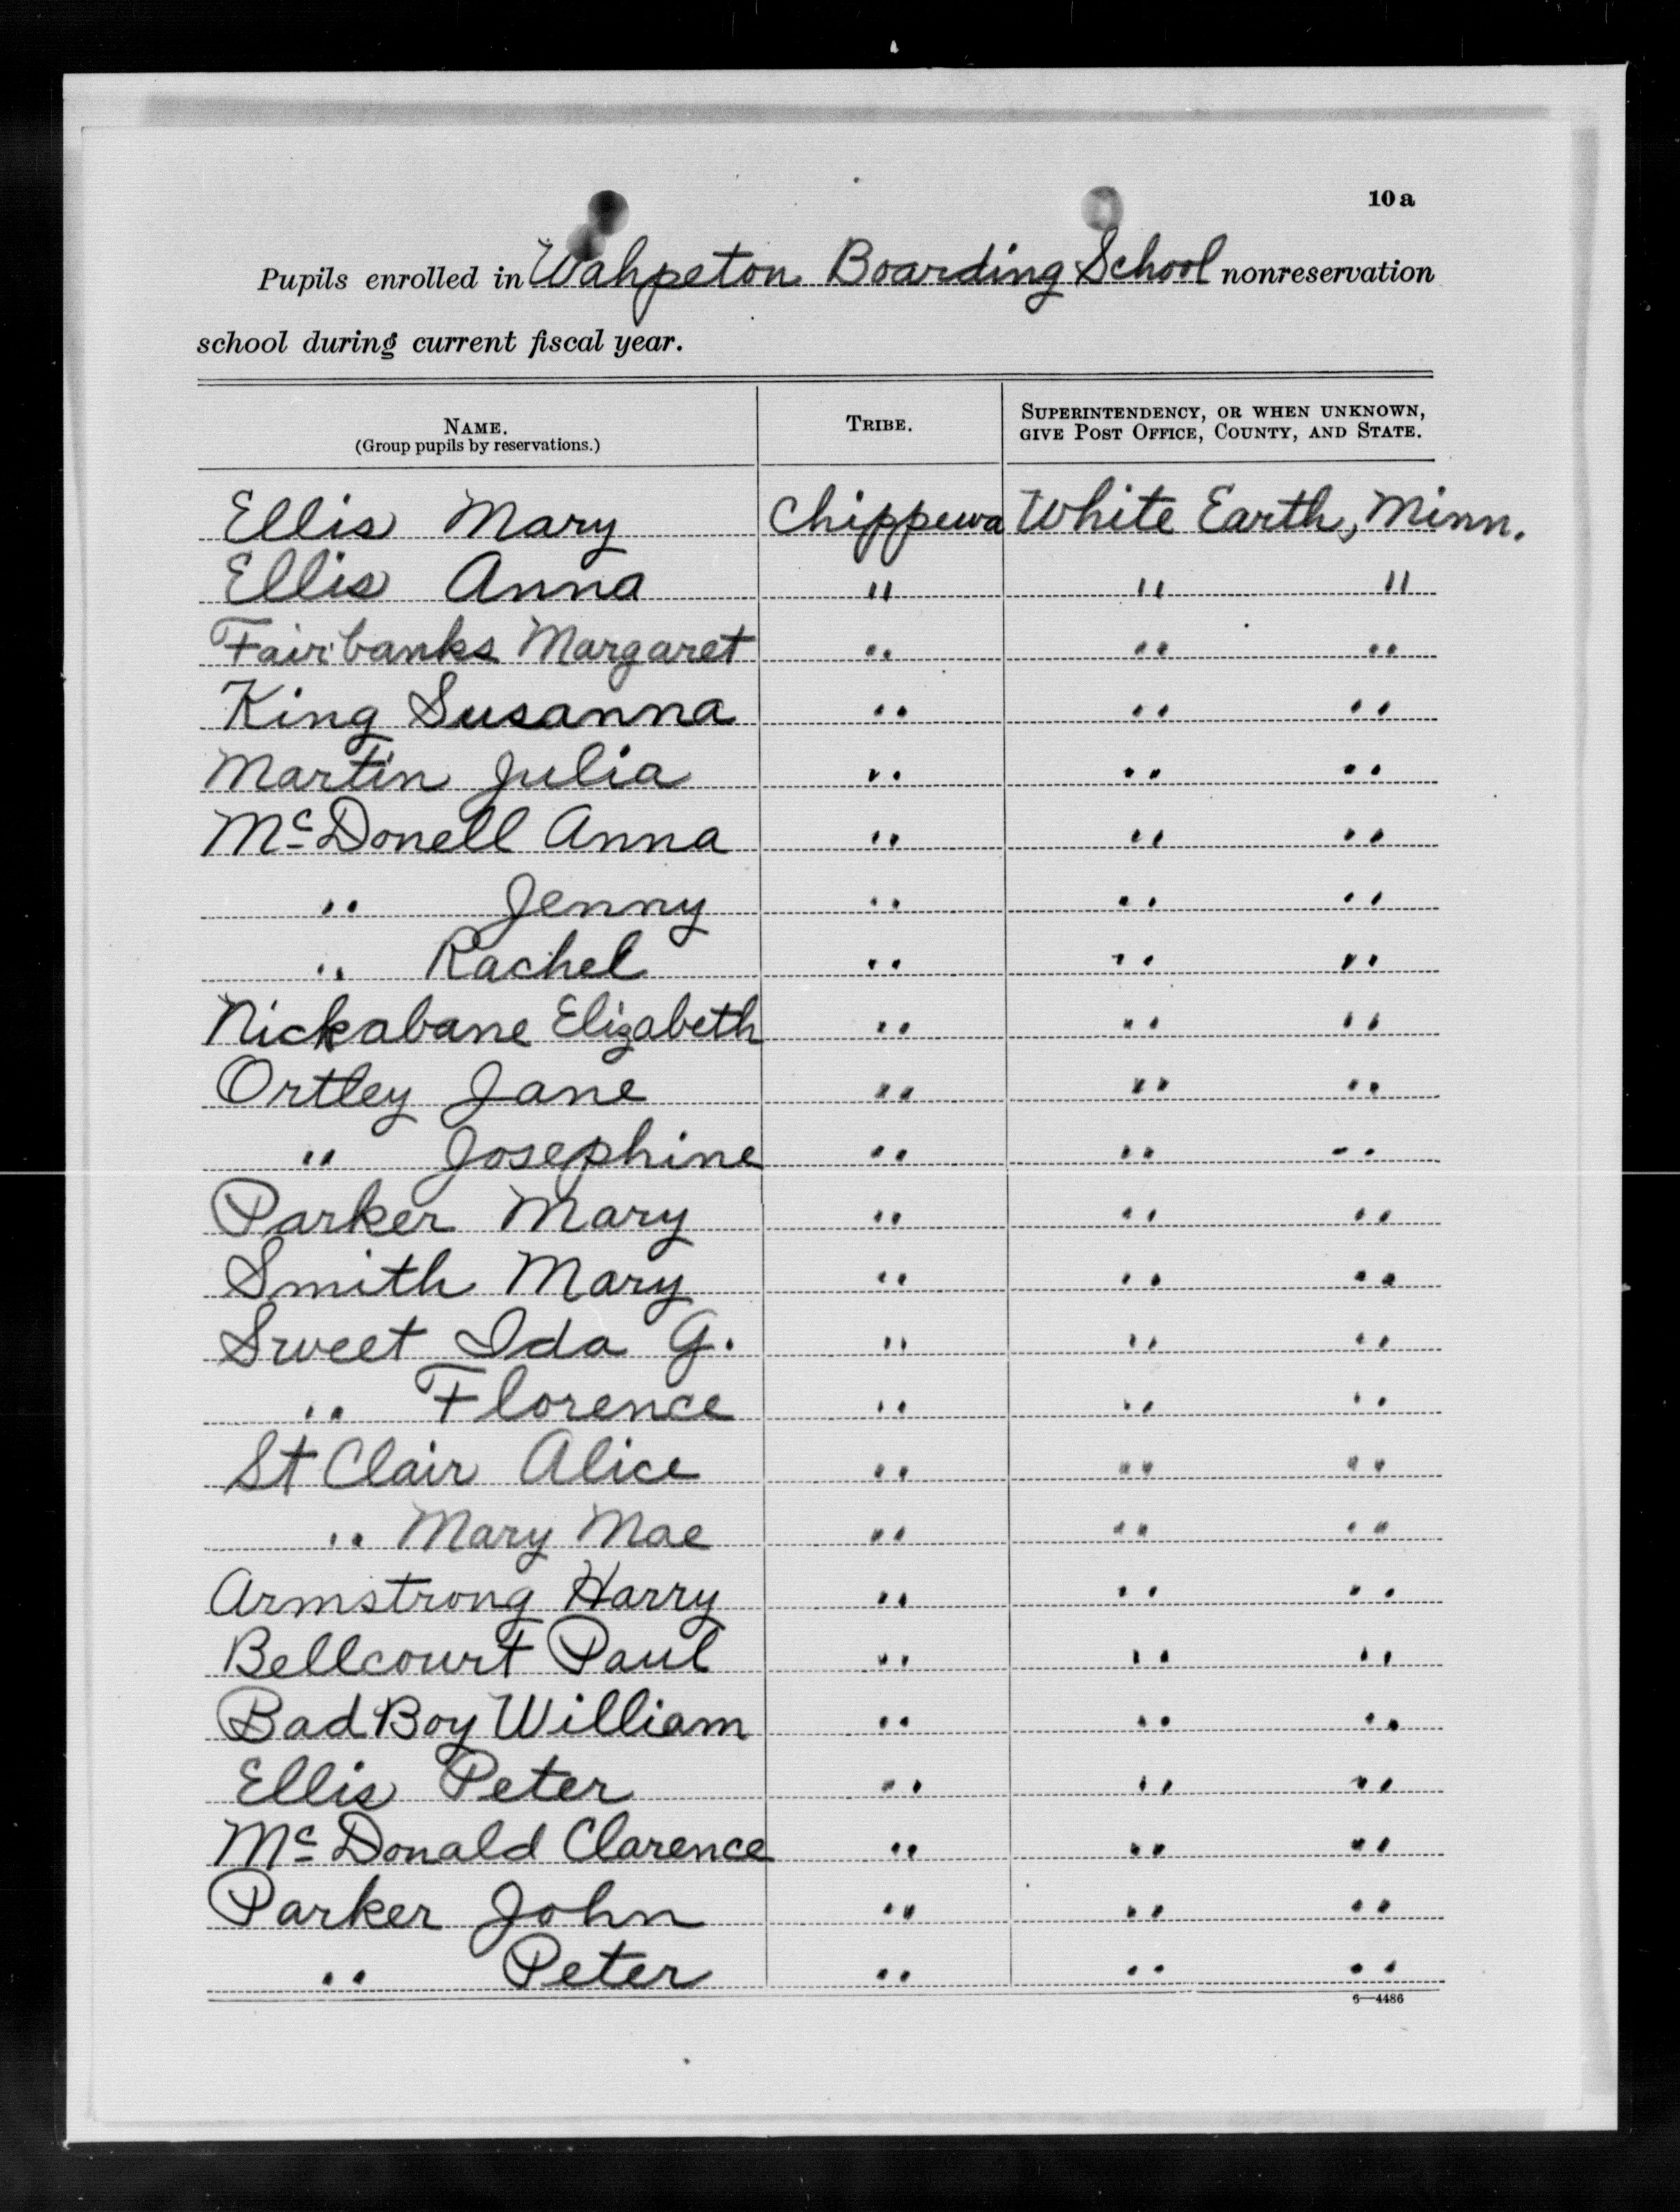 10a
Pupils enrolled in Wahpeton Boarding School nonreservation
school during current fiscal year.
NAME. TRIBE. SUPERINTENDENCY, OR WHEN UNKNOWN,
(Group pupils by reservations.) GIVE POST OFFICE, COUNTY, AND STATE.
Ellis Mary Chippewa White Earth, Minn.
Ellis Anna " " "
Fairbanks Margaret " " "
King Susanna " " "
Martin Julia " " "
McDonell Anna " " "
" Jenny " " "
" Rachel " " "
Nickabane Elizabeth " " "
Ortley Jane " " "
" Josephine " " "
Parker Mary " " "
Smith Mary " " "
Sweet Ida G. " " "
" Florence " " "
St Clair Alice " " "
" Mary Mae " " "
Armstrong Harry " " "
Bellcourt Paul " " "
Bad Boy William " " "
Ellis Peter " " "
McDonald Clarence " " "
Parker John " " "
" Peter " " "
6—4486